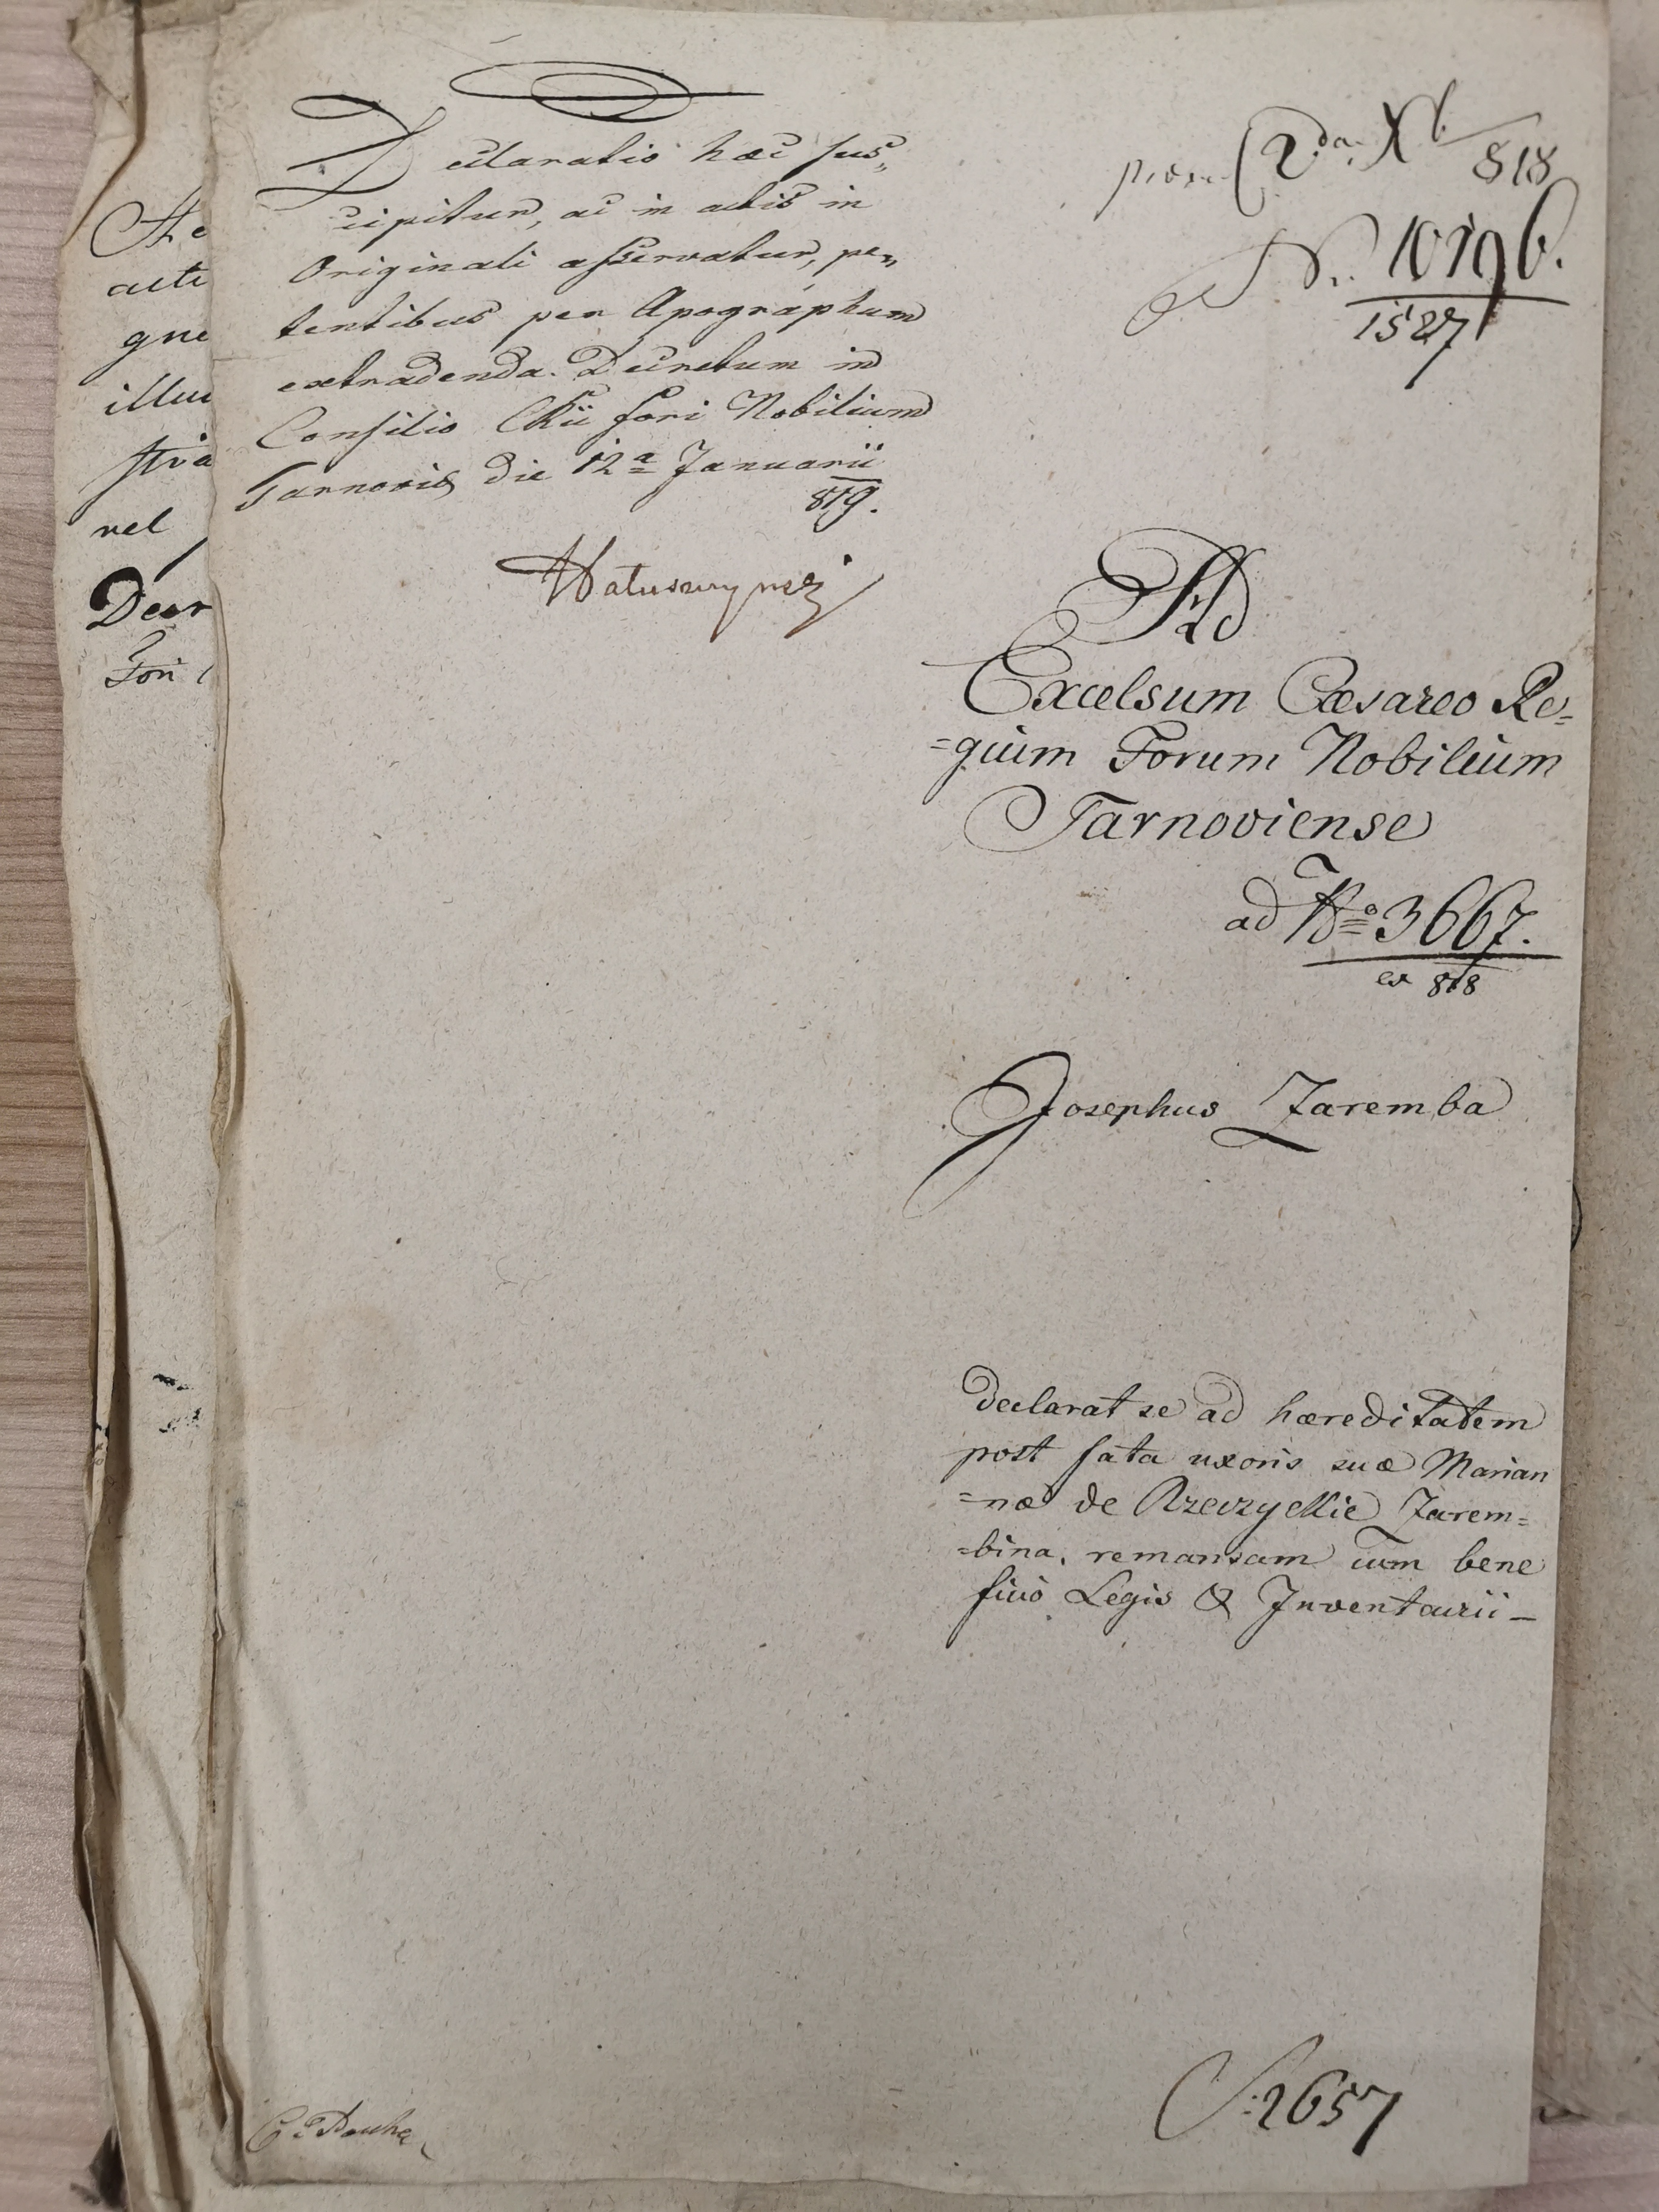 Declaratio hæc sus„
cipitur, ac in actis in
Originali asservatur, pe„
tentibus per Apographum
extradenda. Decretum in
Consilio CRii fori Nobilium
Tarnoviæ die 12ª Januarii
819.
præs. 2da Xb 818
N. 10196.
1527
Ad
Excelsum Cæsareo Re=
=gium Forum Nobilium
Tarnoviense
ad Nº 3667.
ex 818
Josephus Zaremba
declarat se ad hæreditatem
post fata uxoris suæ Marian
=næ de Zarem=
=bina, remansam cum bene
ficio Legis & Inventarii –
2657
Ac
acti
gne
illu
stra
vel
Decr
Fori